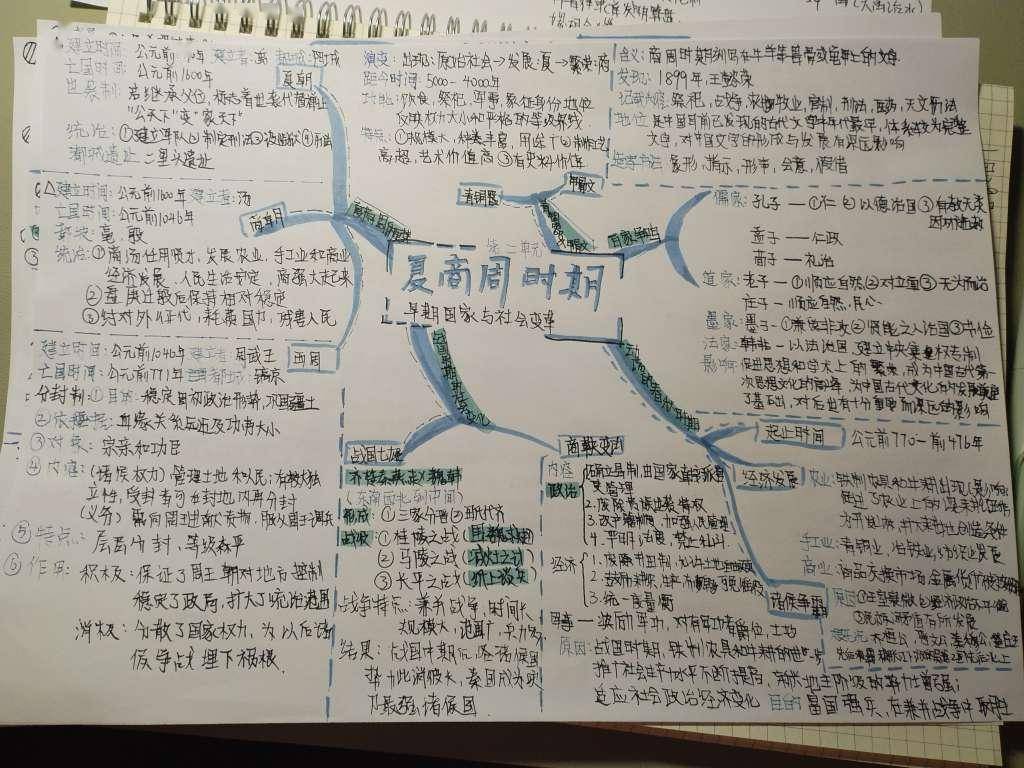 第三单元
夏商周时期
早期国家与社会变革
夏朝
建立时间：公元前
建立者：禹 都城：阳城
亡国时间：公元前1600年
世袭制：
启继承父位，标志着世袭代替禅让
“公天下”变“家天下”
统治：①建立军队②制定刑法③设监狱④
都城遗址 二里头遗址
商朝
建立时间：公元前1600年 建立者：汤
亡国时间：公元前1046年
都城：亳，殷
统治：①商汤任用贤才，发展农业，手工业和商业
经济发展，人民生活安定，商强大起来
②盘庚迁殷后保持相对稳定
③纣对外征伐，耗费国力，残害人民
西周
建立时间：公元前1046年 建立者 周武王
亡国时间：公元前771年 都城：镐京
分封制：①目的：稳定周初政治形势，巩固疆土
②依据是：血缘关系远近及功劳大小
③对象：宗亲和功臣
④内容：（诸侯权力）管理土地和人民；有较大独
立性，受封者可在封地内再分封
（义务）需向周王进献贡物，服从周王调兵
⑤特点：层层分封，等级森严
⑥作用：积极：保证了周王朝对地方控制
稳定了政局，扩大了统治范围
消极：分散了国家权力，为以后诸
侯争战埋下祸根
青铜器
演变：出现：原始社会→发展：夏→繁荣：商
距今时间 5000-4000年
功能：饮食，祭祀，军事，象征身份地位
反映权力大小和
特点：①规模大，种类丰富，用途广②制作工艺
高超，艺术价值高③有史料价值
甲骨文
含义：商周时期刻写在牛羊等兽骨或龟甲上的文字
发现：1899年，王懿荣
记载内容：祭祀，占卜，农牧业，官制，刑法，医药，天文历法
地位：是中国目前已发现的古代文字中年代最早，体系较为完整
文字，对中国文字的形成与发展有深远影响
造字方法 象形，指示，形声，会意，假借
百家争鸣
儒家：孔子——①仁 ②以德治国 ③有教无类
因材施教
孟子——仁政
荀子——礼治
道家：老子——①顺应自然②对立面③无为而治
庄子—顺应自然，民心
墨家：墨子—①兼爱非攻②贤能之人治国③节俭
法家：韩非—以法治国，建立中央集权专制
影响：促进思想和学术上的繁荣，成为中国古代第一
次思想文化的高峰，为中国古代文化的发展奠定
了基础，对后世有十分重要而深远的影响
动荡的春秋时期
起止时间
公元前770-前476年
经济发展
农业：铁制农具和牛耕出现
促进了农业上的深耕细作
手工业：青铜业，冶铁业，纺织业发展
商业：商品交换市场，金属货币
诸侯争霸
战国时期的社会变化
战国七雄
齐楚秦燕赵魏韩
（东南西北到中间）
形成：①三家分晋②田氏代齐
战役：①桂陵之战（围魏救赵）
②马陵之战（减灶之计）
③长平之战（纸上谈兵）
战争特点：兼并战争，时间长
规模大，范围广，兵力多
结果：战国中期后，各诸侯国
势力此消彼长，秦国成为实
力最强诸侯国
商鞅变法
内容
政治
1.确立县制，由国家直接派官
吏管理
2.废除贵族世袭特权
3.改革户籍制度，加强人民管理
4.严明法度，禁止私斗
经济
3.统一度量衡
军事——奖励军功，对有军功者授爵位，土地
原因：战国时期，铁制农具和牛耕的进一步
推广，社会生产水平不断提高，新兴地主阶级的势力增强；
适应社会政治经济变化 目的 富国强兵，在兼并战争中取胜